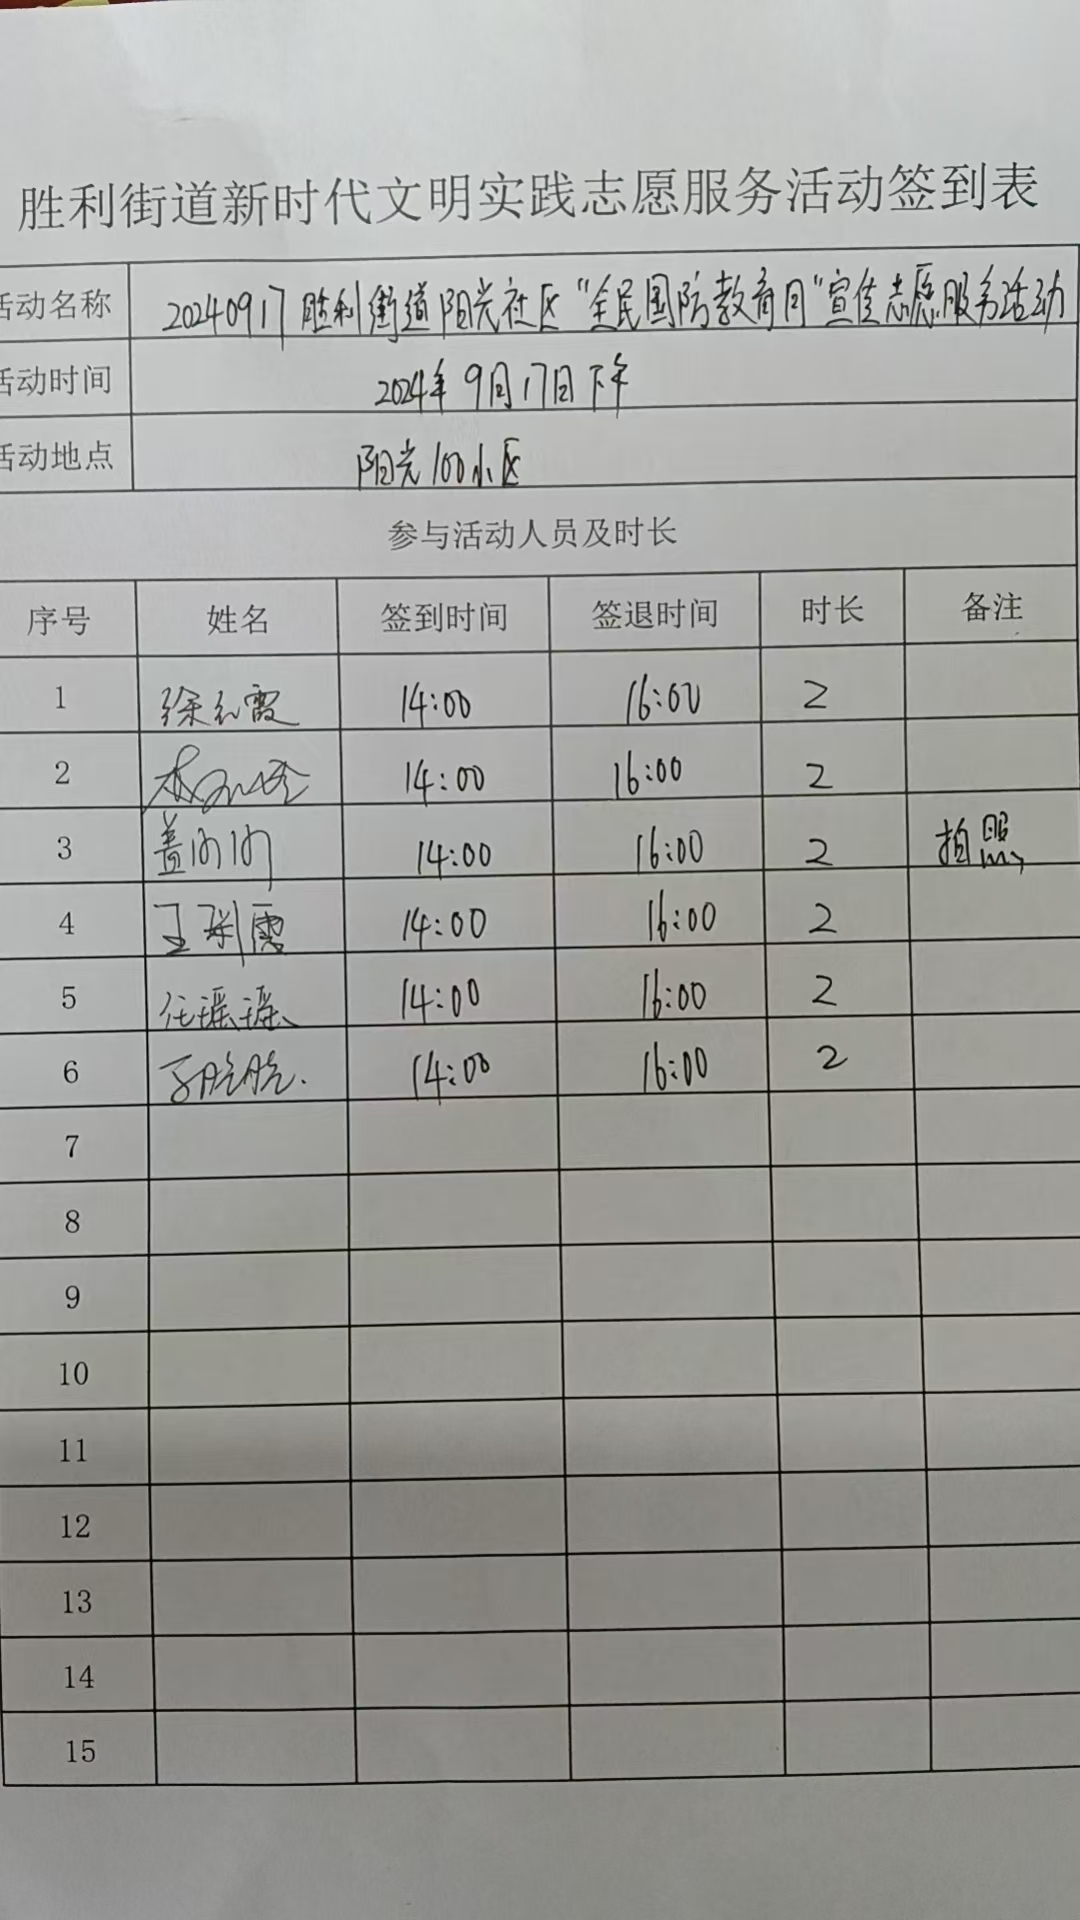 胜利街道新时代文明实践志愿服务活动签到表
活动名称 20240917胜利街道阳光社区“全民国防教育月”宣传志愿服务活动
活动时间 2024年9月17日下午
活动地点 阳光100小区
参与活动人员及时长
序号 姓名 签到时间 签退时间 时长 备注
1 徐红霞 14:00 16:00 2
2 14:00 16:00 2
3 盖 14:00 16:00 2 拍照
4 王彩霞 14:00 16:00 2
5 任瑶瑶 14:00 16:00 2
6 14:00 16:00 2
7
8
9
10
11
12
13
14
15